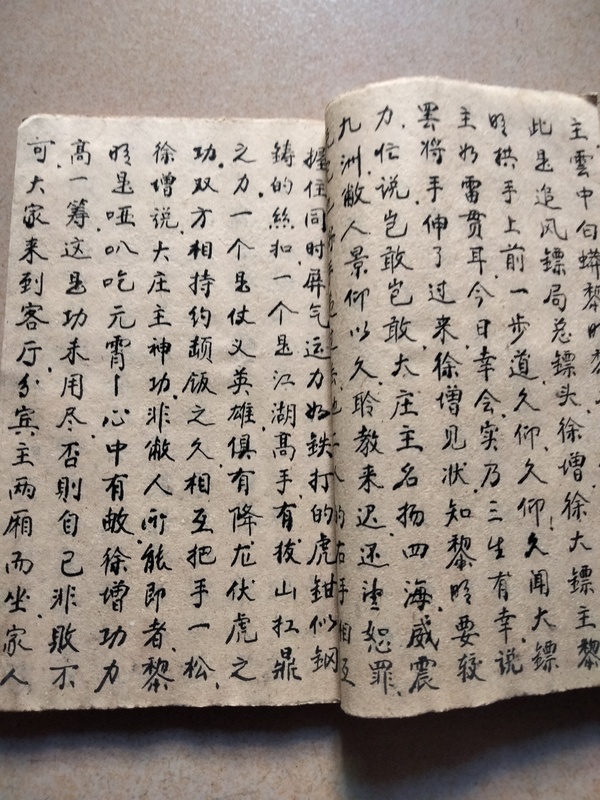 主雲中白蟒黎明
此是追风鏢局总鏢头徐增徐大鏢主黎
明拱手上前一步道久仰.久仰!久闻大鏢
主如雷贯耳.今日幸会实乃三生有幸.说
罢将手伸了过来.徐增见状.知黎明要较
力.忙说岂敢岂敢大庄主名扬四海.威震
九洲.敝人景仰以久.聆教来迟.还望恕罪.
的右手相互
握住同时屏气运力如铁打的虎钳似钢
铸的絲扣.一个是江湖高手有拔山扛鼎
之力.一个是仗义英雄.俱有降龙伏虎之
功.双方相持约顿饭之久.相互把手一松.
徐增说.大庄主神功.非敝人所能即者.黎
明是哑叭吃元宵—心中有敝.徐增功力
高一筹.这是功未用尽.否則自己非败不
可.大家来到客厅.分宾主两厢而坐.家人